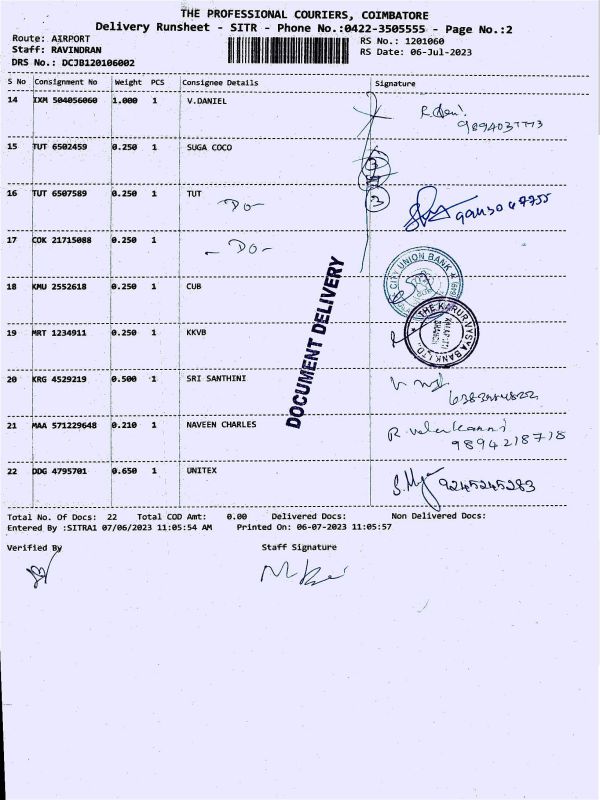 THE PROFESSIONAL COURIERS, COIMBATORE
Delivery Runsheet - SITR - Phone No.:0422-3505555 - Page No.:2
Route: AIRPORT
RS No.: 1201060
Staff: RAVINDRAN
RS Date: 06-Jul-2023
DRS No.: DCJB120106002
S No Consignment No Weight PCS Consignee Details Signature
14 IXM 504056060 1.000 1 V.DANIEL
15 TUT 6502459 0.250 1 SUGA COCO
3
16 TUT 6507589 0.250 1 TUT
-DO- 3
17 COK 21715088 0.250 1
- DO-
CITY UNION BANK
18 KMU 2552618 0.250 1 CUB
THE KARUR VYSYA BANK LTD.
19 MRT 1234911 0.250 1 KKVB
DOCUMENT DELIVERY
20 KRG 4529219 0.500 1 SRI SANTHINI
21 MAA 571229648 0.210 1 NAVEEN CHARLES
9894218718
22 DDG 4795701 0.650 1 UNITEX
9245245283
Total No. Of Docs: 22 Total COD Amt: 0.00 Delivered Docs: Non Delivered Docs:
Entered By :SITRA1 07/06/2023 11:05:54 AM Printed On: 06-07-2023 11:05:57
Verified By Staff Signature